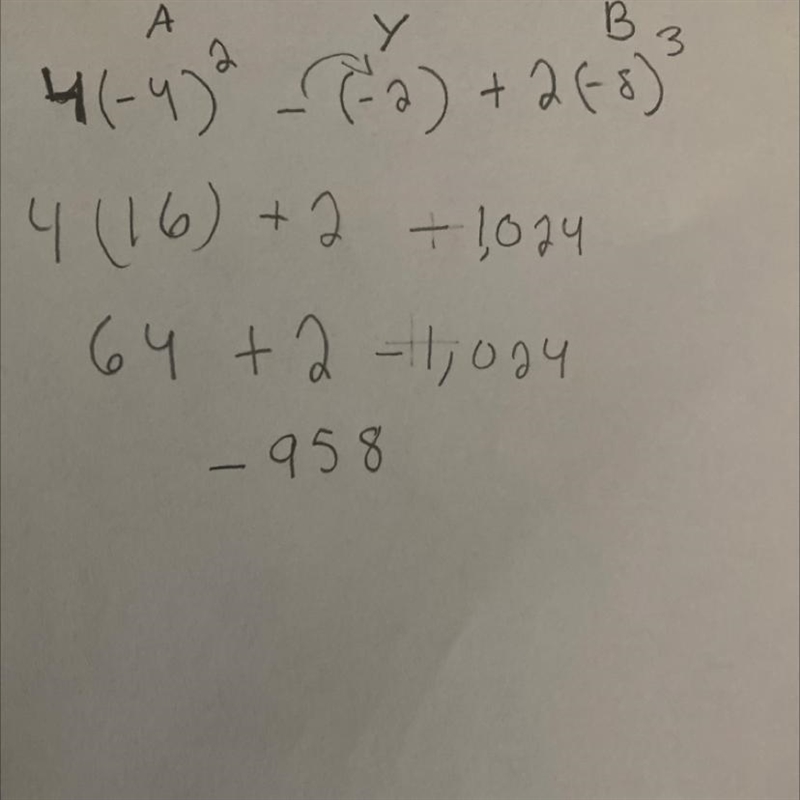 A Y B
4(-4)² -(-2) + 2(-8)³
4(16) + 2 - 1,024
64 + 2 - 1,024
- 958